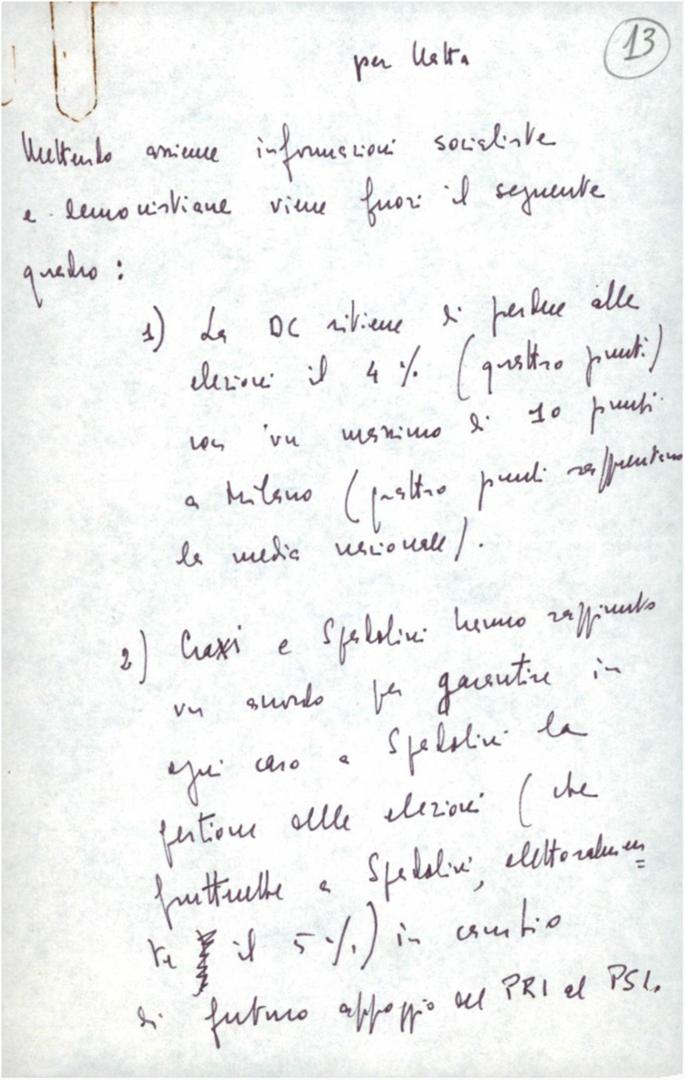 13
per Natta
Mettendo assieme informazioni socialiste
e democristiane viene fuori il seguente
quadro:
1) La DC ritiene di perdere alle
elezioni il 4% (quattro punti)
con un massimo di 10 punti
a Milano (quattro punti rappresentano
la media nazionale).
2) Craxi e Spadolini hanno raggiunto
un accordo per garantire in
ogni caso a Spadolini la
gestione delle elezioni (che
frutterebbe a Spadolini, elettoralmen=
te il 5%) in cambio
di futuro appoggio del PRI al PSI.